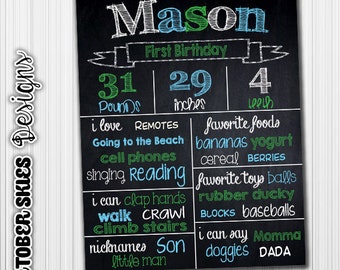 Mason
First Birthday
31 29 4
Pounds inches teeth
i love REMOTES
Going to the Beach
cell phones
singing Reading
favorite foods
bananas yogurt
cereal BERRIES
i can clap hands
walk CRAWL
climb stairs
favorite toys balls
rubber ducky
BLOCKS baseballs
nicknames Son
little man
i can say Momma
doggles DADA
OCTOBER SKIES Designs